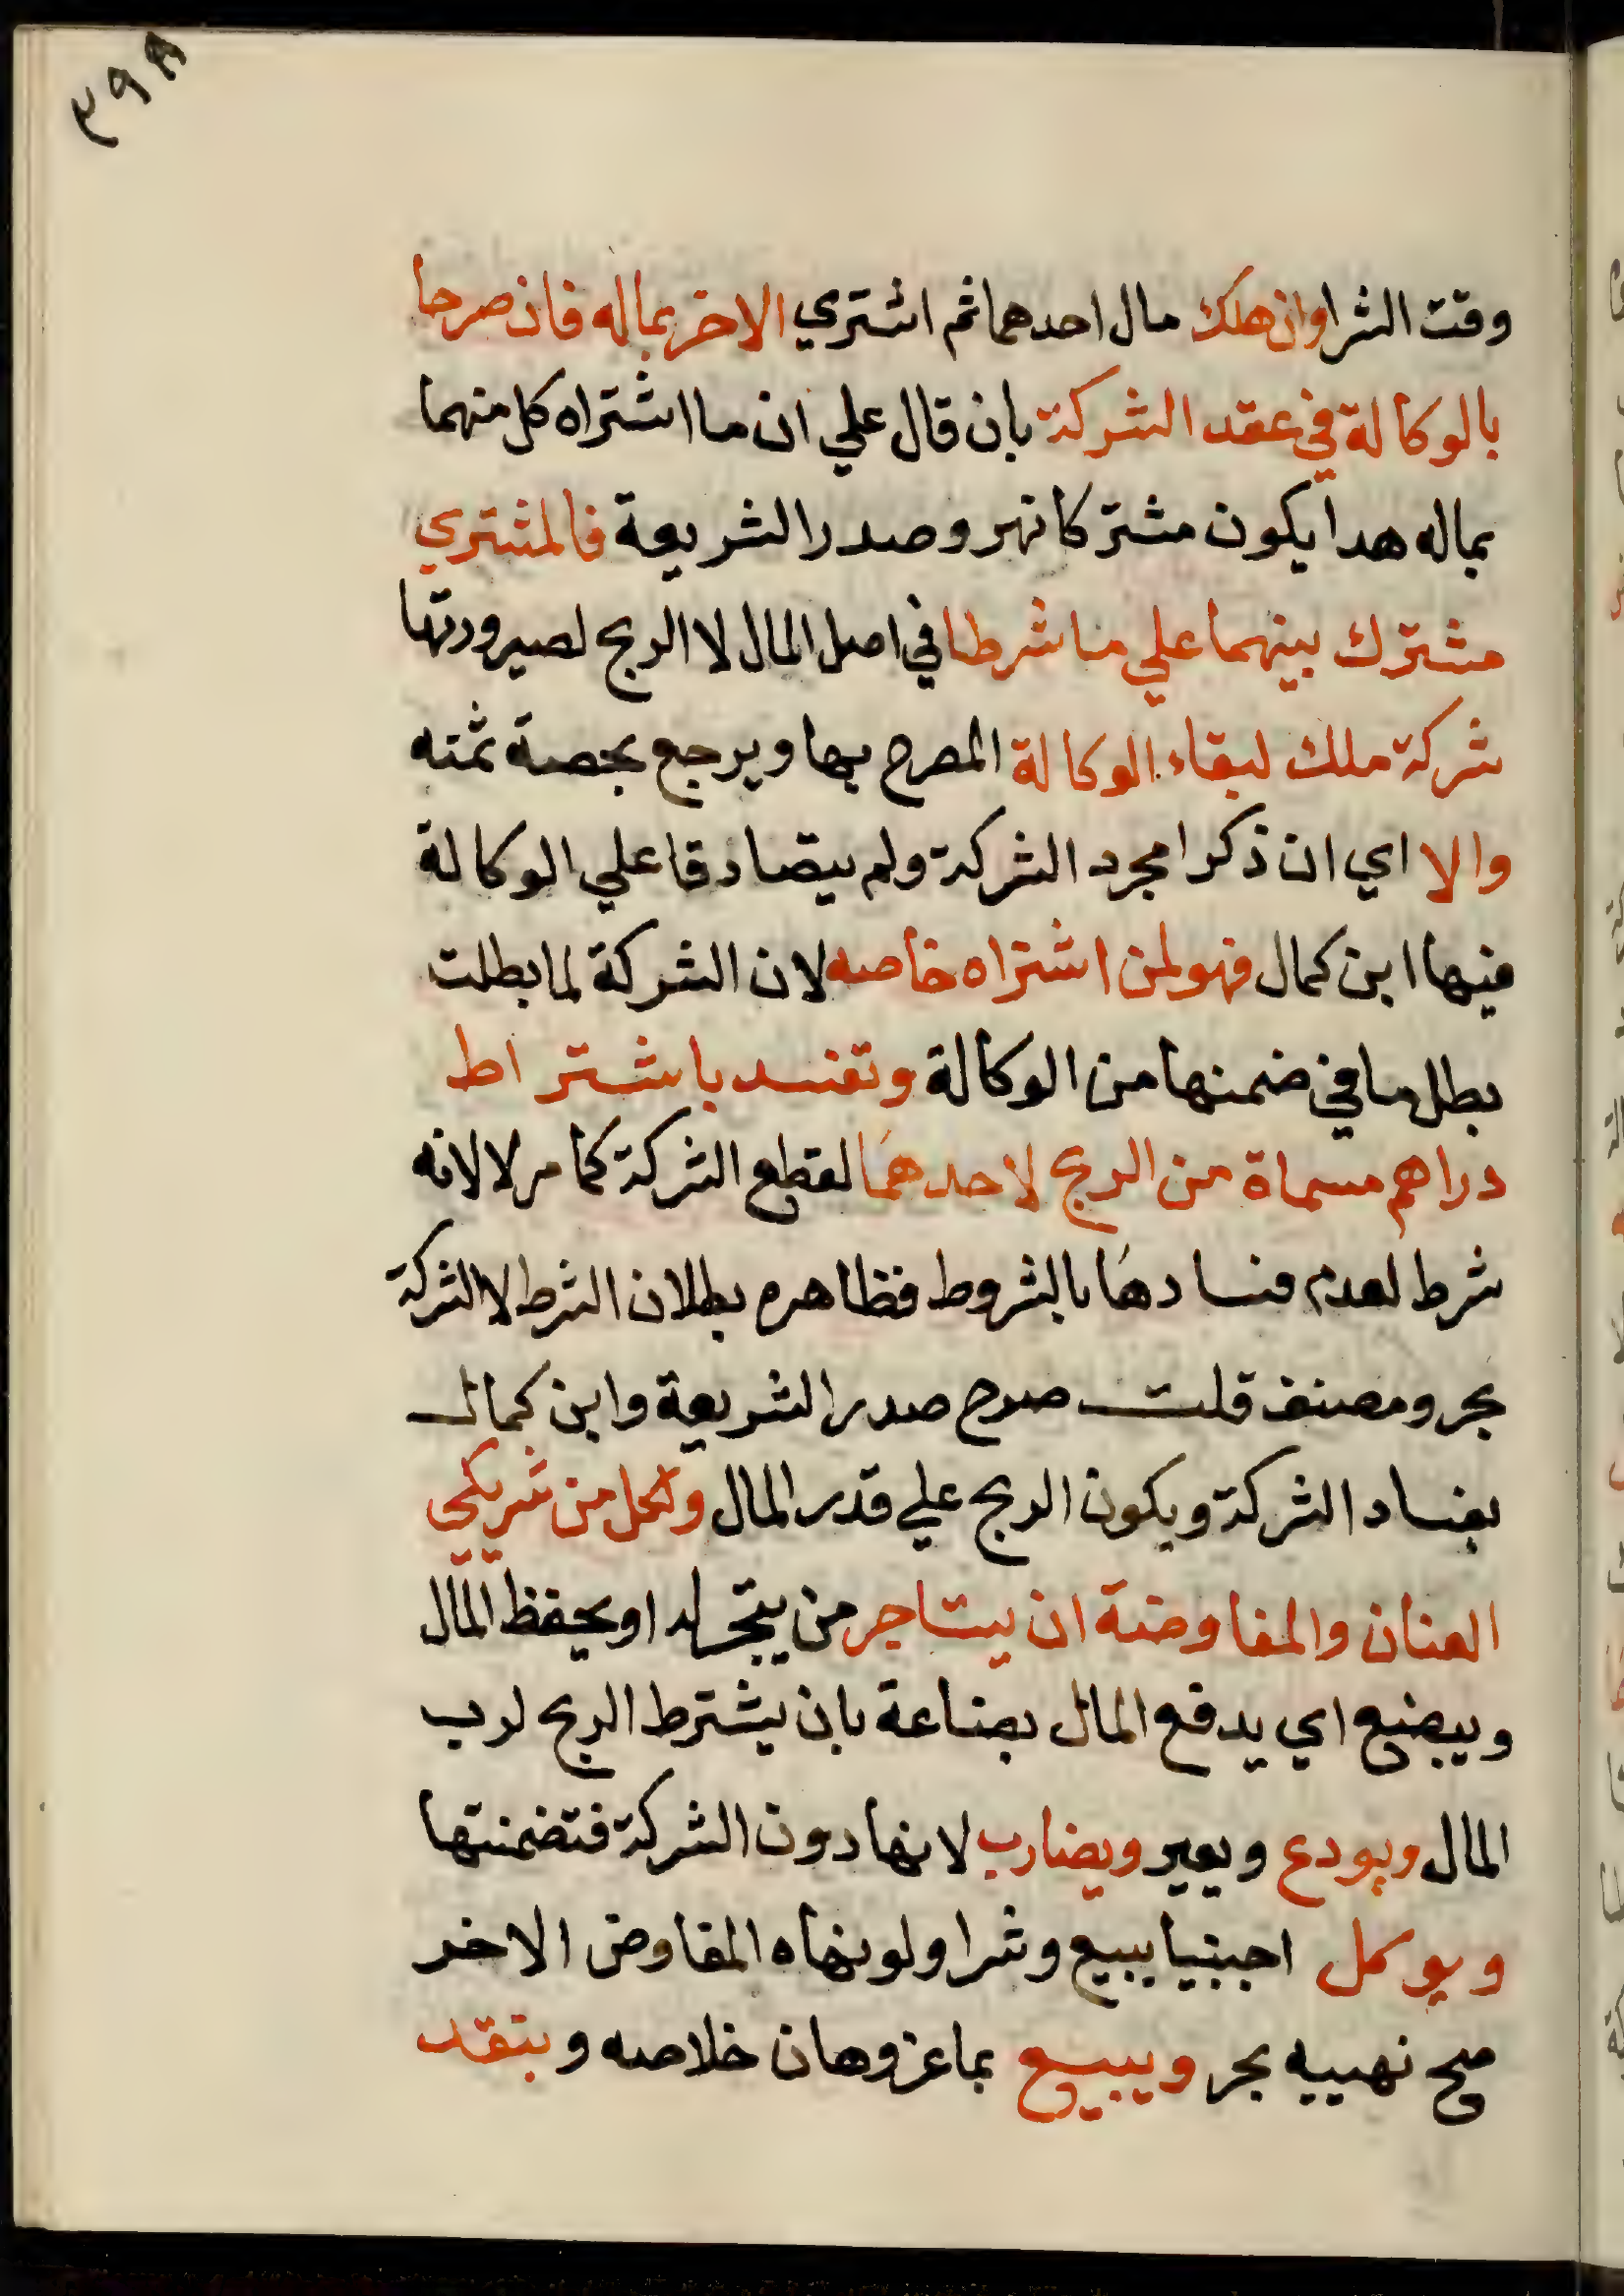 ٣٩٨
وقت الشرا وان هلك مال احدهما ثم اشتري الاخر بماله فان صرحا
بالوكالة في عقد الشركة بان قال علي ان ما اشتراه كل منهما
بماله هدا يكون مشتركا نهر وصدر الشريعة فالمشتري
مشترك بينهما علي ما شرطا في اصل المال لا الربح لصيرورتها
شركة ملك لبقاء الوكالة المصرح بها ويرجع بحصة ثمنه
والا اي ان ذكرا مجرد الشركة ولم يتصادقا علي الوكالة
فيها ابن كمال فهو لمن اشتراه خاصه لان الشركة لما بطلت
بطل ما في ضمنها من الوكالة وتفسد باشتراط
دراهم مسماة من الربح لاحدهما لقطع الشركة كما مر لا لانه
شرط لعدم فسادها بالشروط فظاهره بطلان الشرط لا الشركة
بحر ومصنف قلت صرح صدر الشريعة وابن كمال
بفساد الشركة ويكون الربح علي قدر المال ولكل من شريكي
العنان والمفاوضة ان يستاجر من يتجر له او يحفظ المال
ويبضع اي يدفع المال بضاعة بان يشترط الربح لرب
المال ويودع ويعير ويضارب لانها دون الشركة فتضمنتها
ويوكل اجنبيا ببيع وشرا ولو نهاه المفاوض الاخر
صح نهييه بحر ويبيع بما عز وهان خلاصه وبنقد